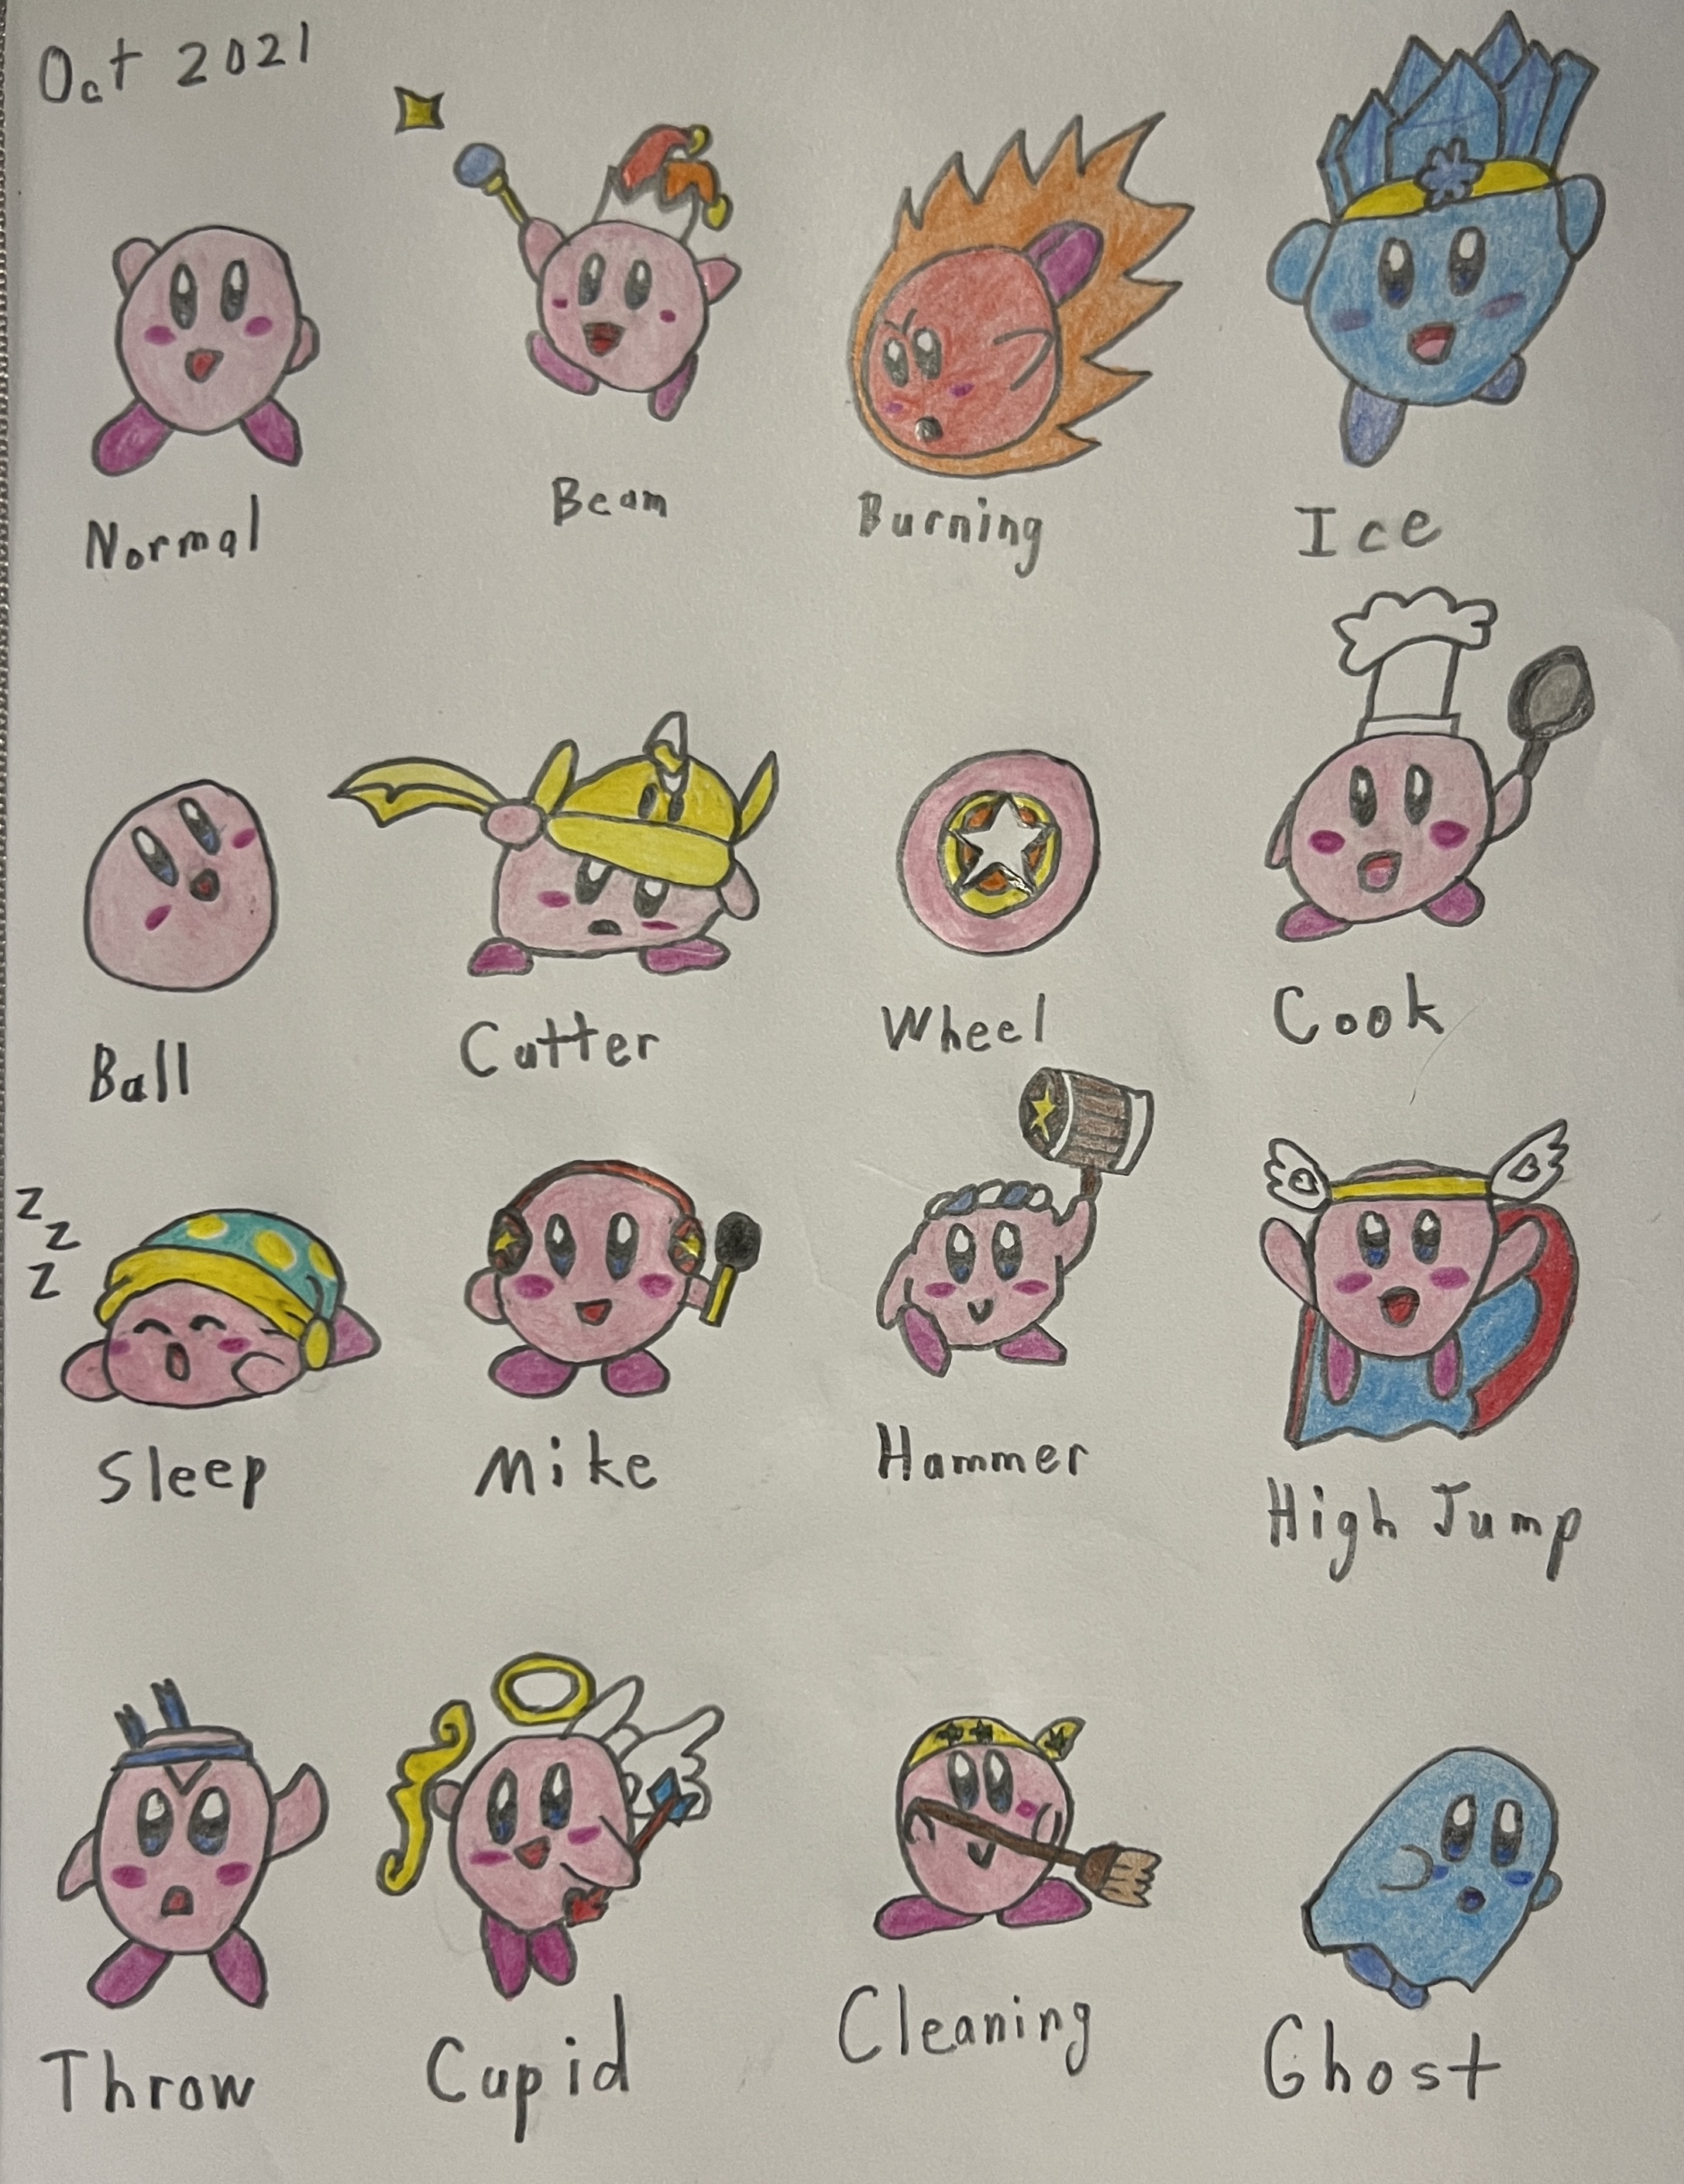 Oct 2021
Normal
Beam
Burning
Ice
Ball
Cutter
Wheel
Cook
Z
Z
Z
Sleep
Mike
Hammer
High Jump
Throw
Cupid
Cleaning
Ghost